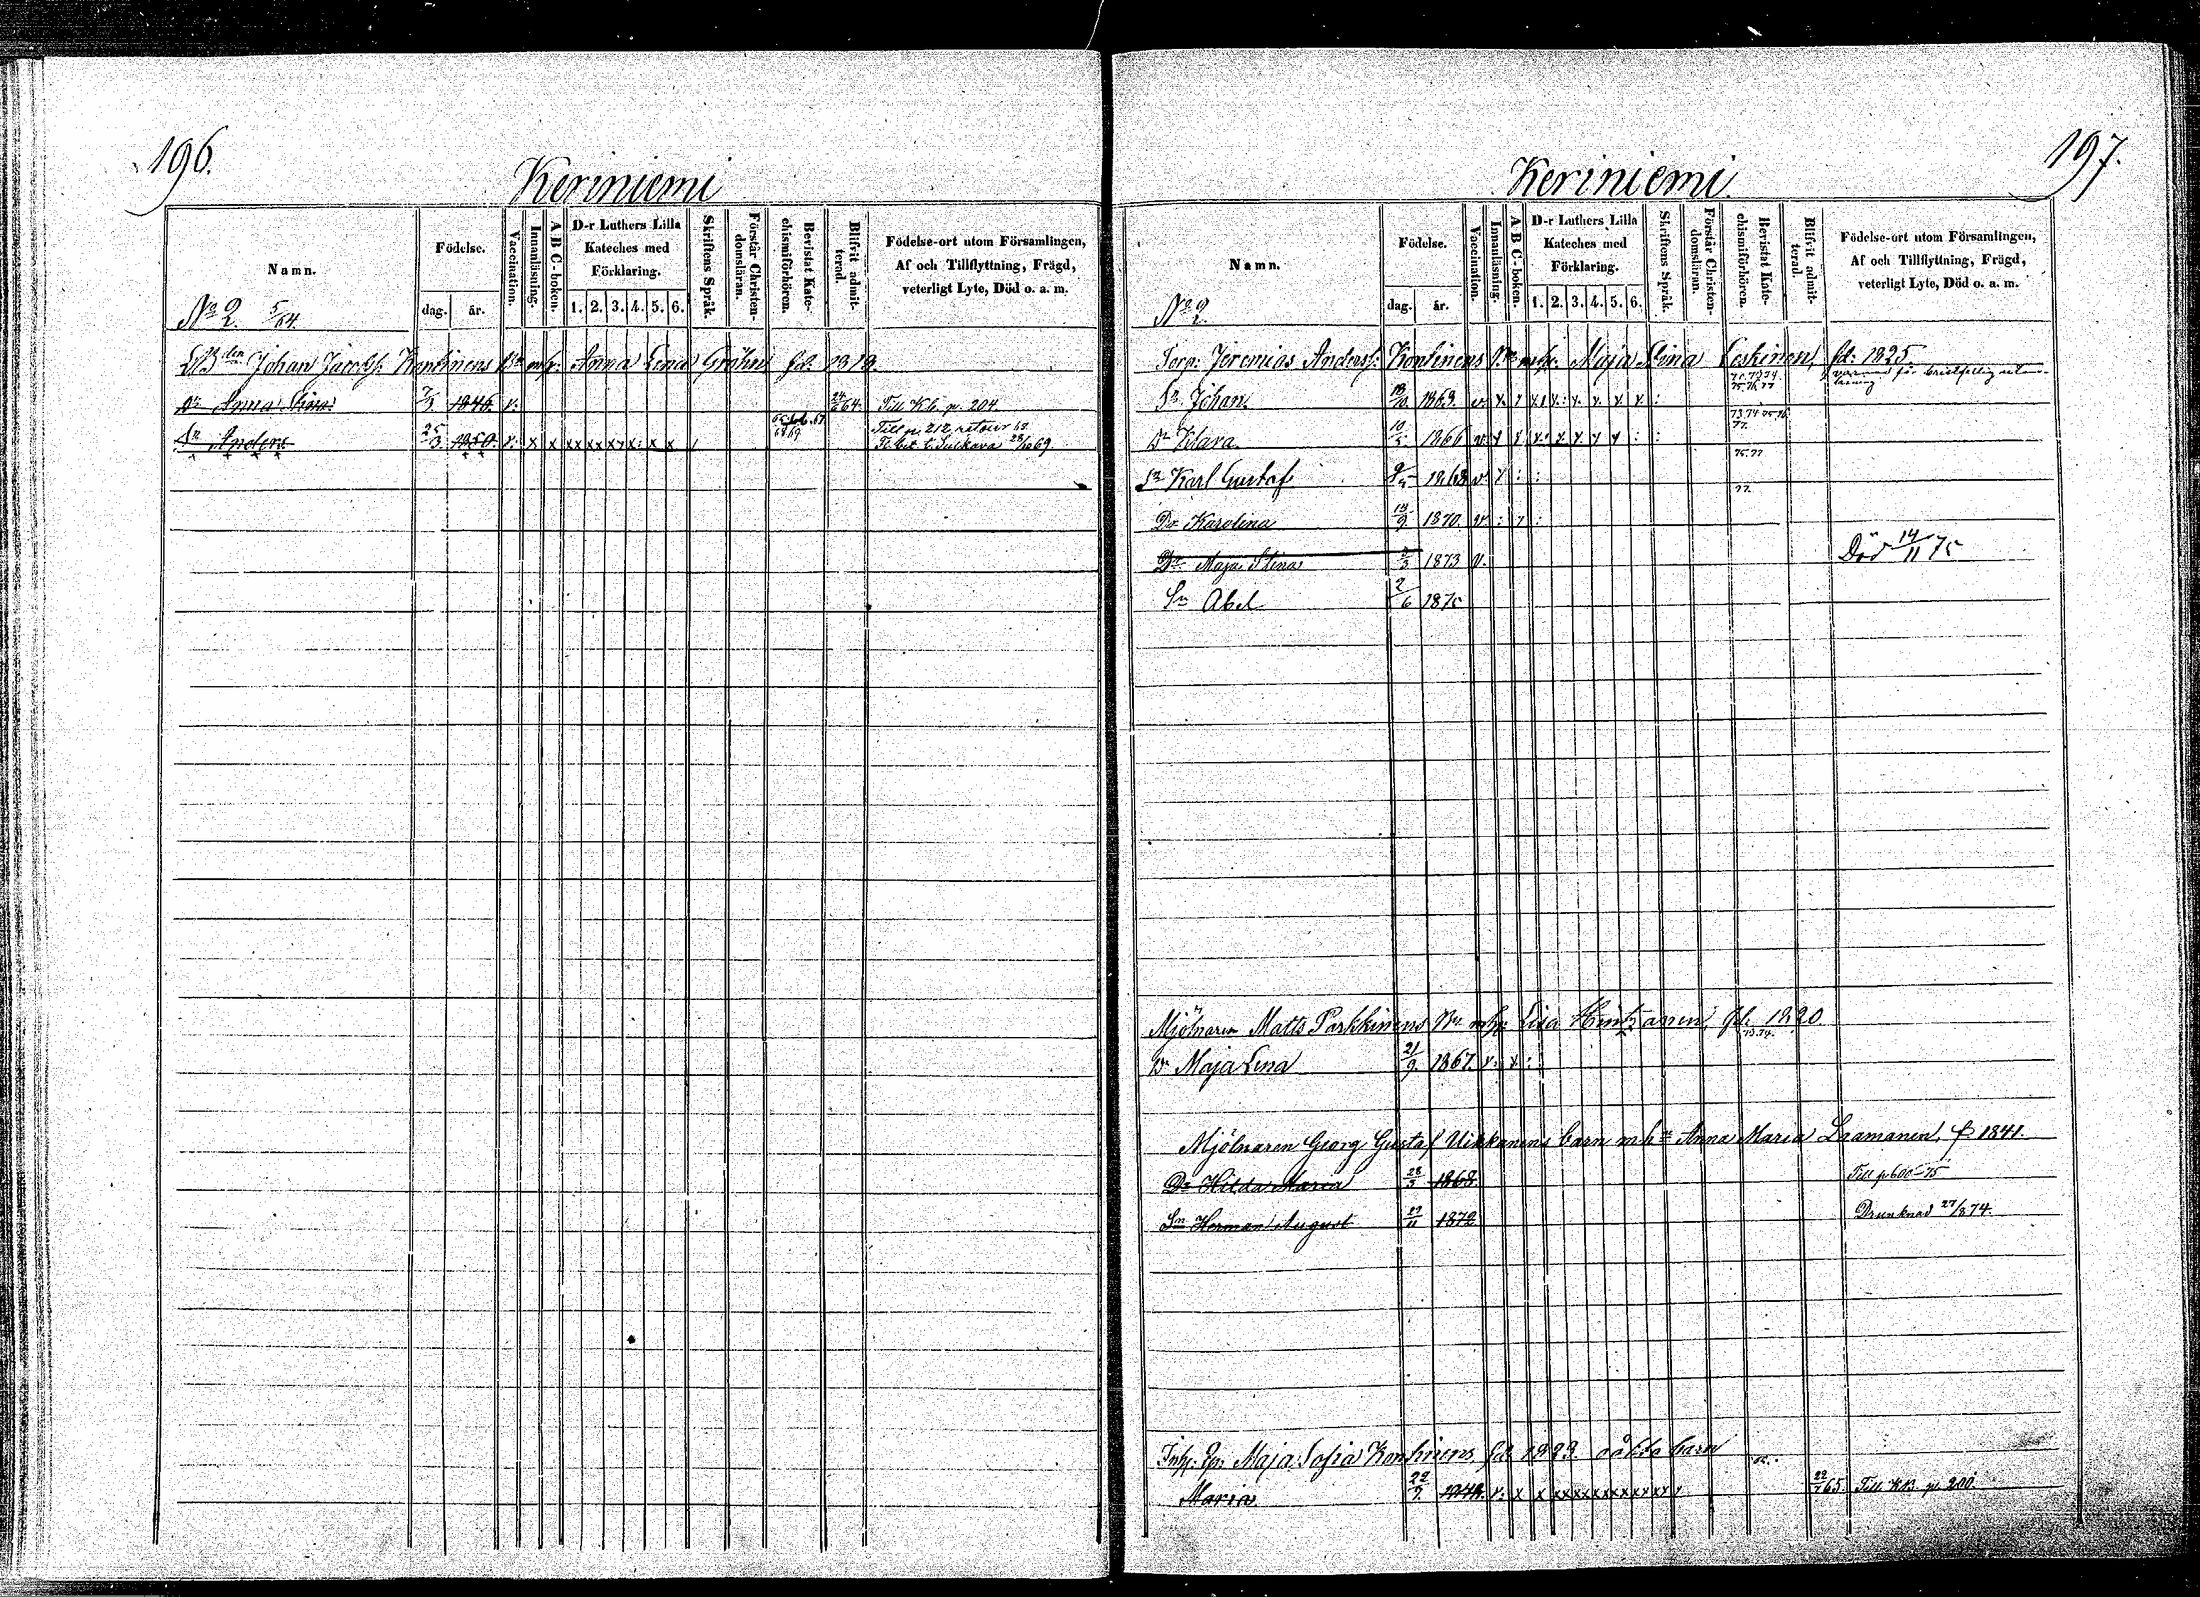 196.
Keriniemi
Namn.
Födelse.
dag. år.
Vaccination.
Innanläsning.
A B C-boken.
D-r Luthers Lilla Kateches med Förklaring.
1. 2. 3. 4. 5. 6.
Skriftens Språk.
Förstår Christendomsläran.
Bevistat Katechismiförhören.
Blifvit admitterad.
Födelse-ort utom Församlingen, Af och Tillflyttning, Frägd, veterligt Lyte, Död o. a. m.
No 2. 5/64.
Johan Jacobss: Kontinens Bn mh: Anna Lena Gröhn fd. 1819.
Dr Anna Stina 7/3 1846. v. 64. Till Kb. p. 204.
Till p. 212 retour 68
Sn Anders 25/3. 1850. v. x x xx xx xx x: x x 68 69 Fl. bet. t. Sulkava 28/10 69
197.
Keriniemi.
Namn.
Födelse.
dag. år.
Vaccination.
Innanläsning.
A B C-boken.
D-r Luthers Lilla Kateches med Förklaring.
1. 2. 3. 4. 5. 6.
Skriftens Språk.
Förstår Christendomsläran.
Bevistat Katechismiförhören.
Blifvit admitterad.
Födelse-ort utom Församlingen, Af och Tillflyttning, Frägd, veterligt Lyte, Död o. a. m.
No 2.
Torp: Jeremias Anderss: Kontinens Bn mh: Maja Stina Leskinen, fd: 1825.
Sn Johan. 18/10. 1863. v.
75. 76 77
73. 74 75 76 77.
Dr Klara 10/5 1866 v.
75. 77
Sn Karl Gustaf 9/5 1868 v.
77.
Dr Karolina 18/9. 1870. v.
Dr Maja Stina 3/3 1873 v. Död 14/11 75
Sn Abel 2/6 1875
Mjölnaren Matts Parkkinens Bn mh: Lisa Hintzanen, fd. 1820.
73. 74.
Dr Maja Lena 21/9. 1867. v.
Mjölnaren Georg Gustaf Uikkanens barn mhn Anna Maria Laamanen, f 1841.
Dr Hilda Maria 28/3 1868 Till p 600 75
Sn Herman August 27/11 1872 Drunknad 27/8 74.
Inh: Maja Sofia Kontinens fd. 1823. oäkta barn
Maria 22/7. v. x x xxxxxxxxxxxx 65. Till KB. p. 200.